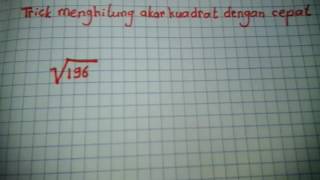 Trick menghitung akar kuadrat dengan cepat
√196